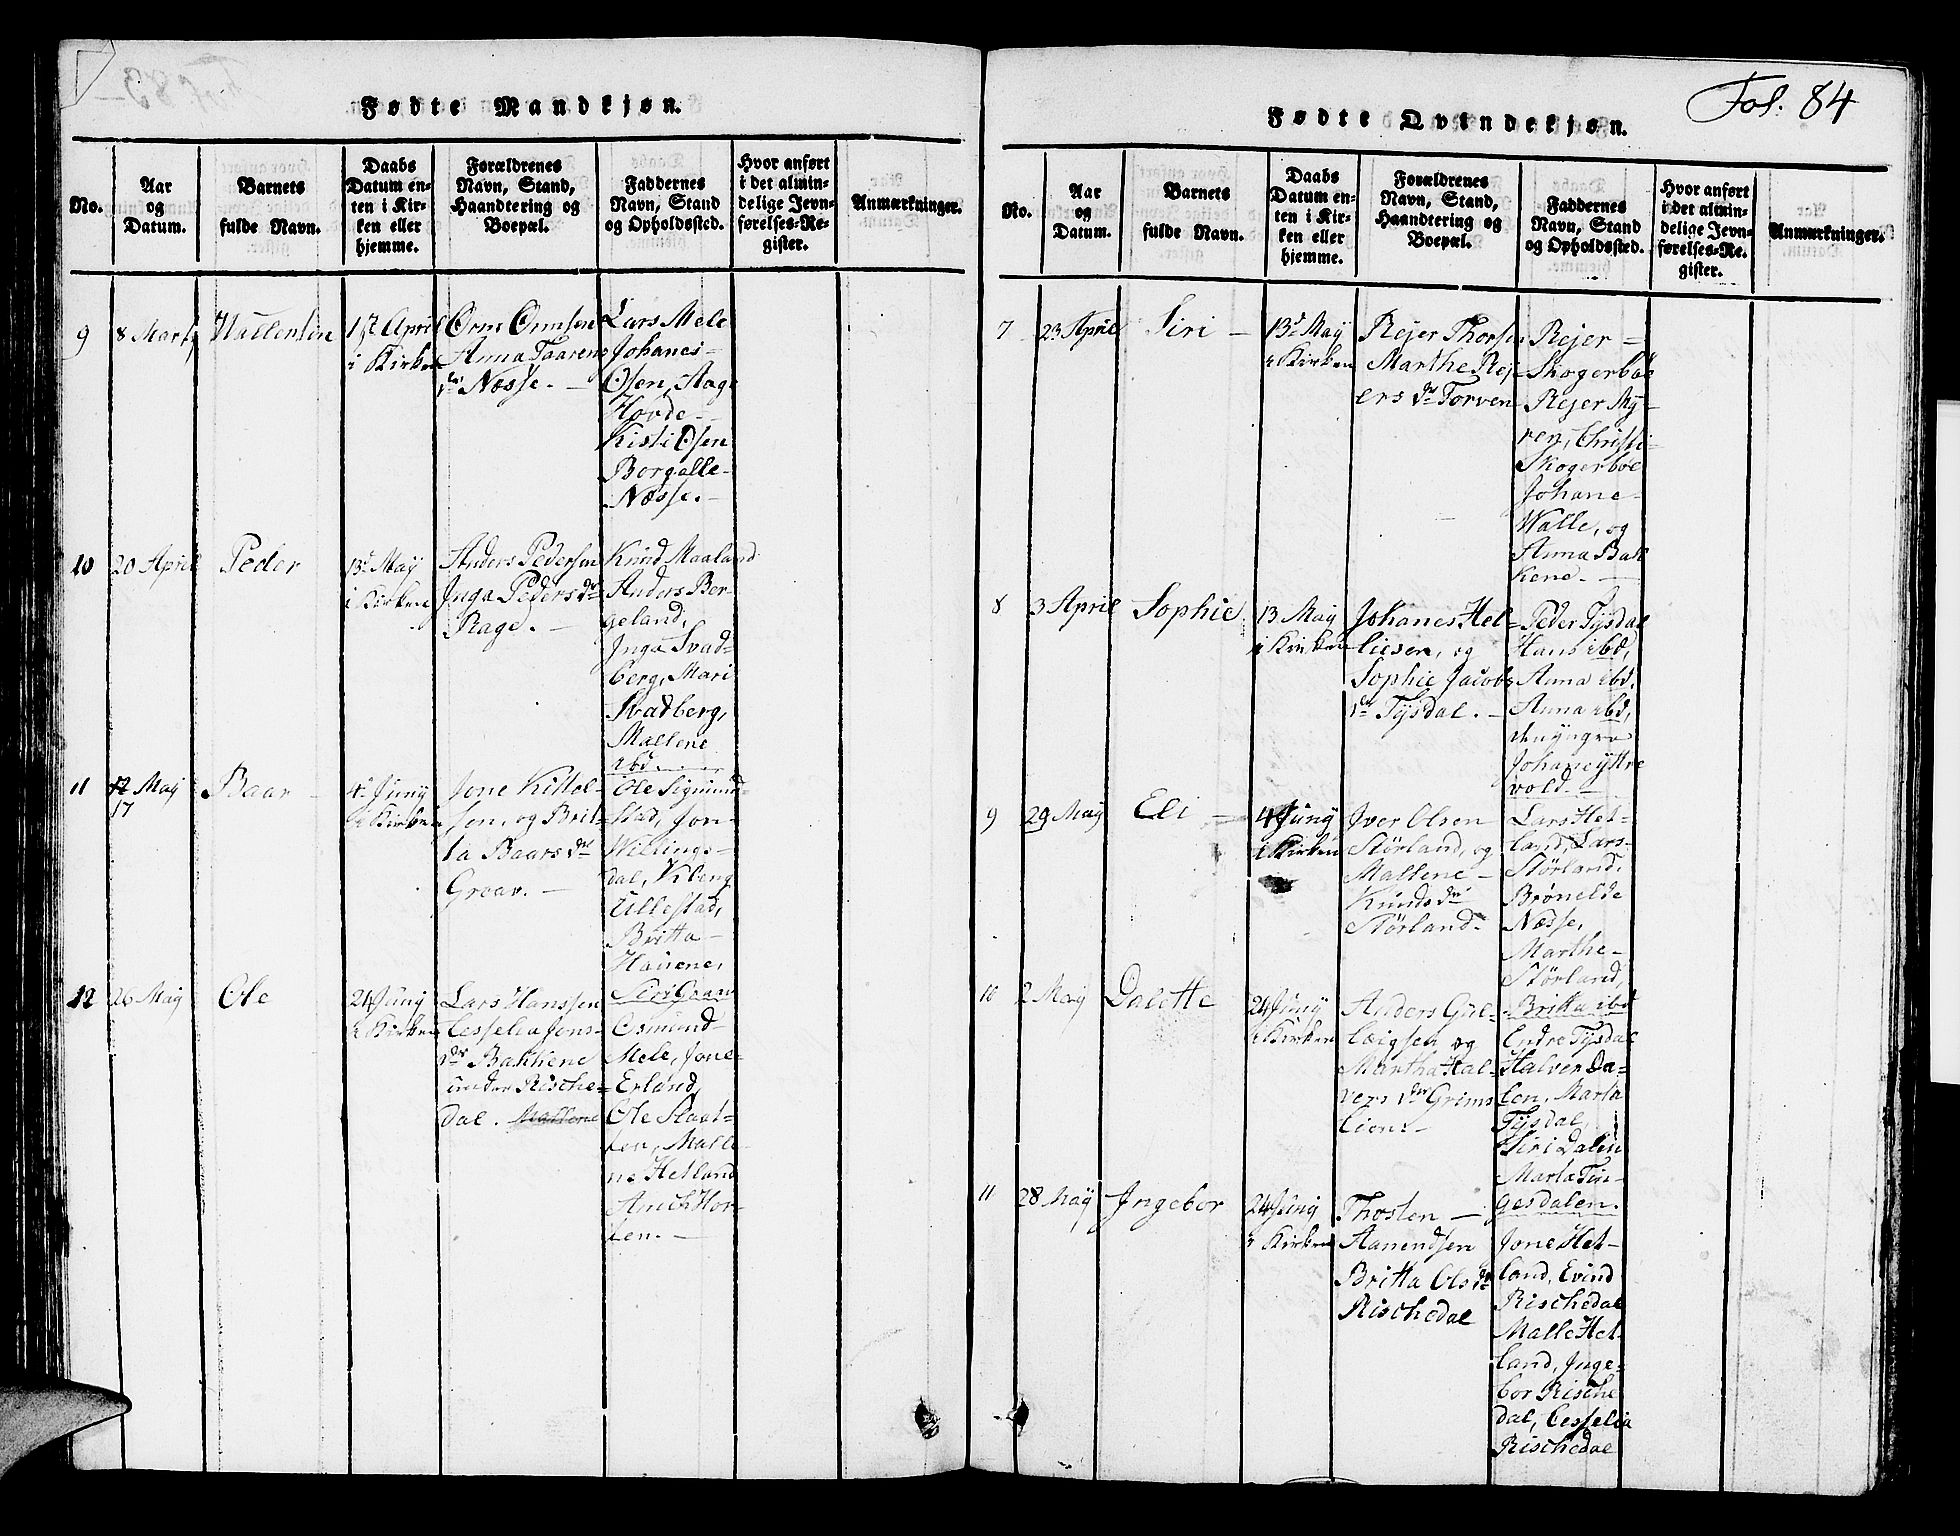 Fødte Mandkjøn.
No.
Aar
og
Datum.
Barnets
fulde Navn.
Daabs
Datum en-
ten i Kir-
ken eller
hjemme.
Forældrenes
Navn, Stand,
Haandtering og
Boepæl.
Faddernes
Navn, Stand
og Opholdssted.
Hvor anført
i det almin-
delige Jevn-
førelses-Re-
gister.
Anmærkninger.
9
8 Marty
Wallentin
1st April
i Kirken
Orm Ormsen
Anna Taarens
dr Næsse. -
Lars Mele
Johanes-
Osen, Aage
Hovde-
Kisti Osen
Borgalle-
Næsse. -
10
20 April
Peder
13d May
i Kirken
Anders Pedersen
Inga Peders dr
Rage. -
Knud Maaland
Anders Ber-
geland,
Inga Svad-
berg, Mari
Svadberg,
Mallene
ibd.
11
12 May
17
Baar -
4d Juny
i Kirken
Jone Kittel-
sen, og Brit-
ta Baars dr
Groav. -
Ole Sigmund-
stad, Jon-
Willings-
dal,
Ullestad,
Britta-
Hauene,
Siri Graav
12
26 May
Ole
24 Juny
i Kirken
Lars Hanssen
Cesselia Jons-
dr Bakkene
under Rische-
dal. Mallene
Osmund-
Mele, Jone-
Erland,
Ole Slaat-
ten, Malle-
ne Hetland
Hor-
ten. -
Fol. 84
Fødte Qvindekjøn.
No.
Aar
og
Datum.
Barnets
fulde Navn.
Daabs
Datum en-
ten i Kir-
ken eller
hjemme.
Forældrenes
Navn, Stand,
Haandtering og
Boepæl.
Faddernes
Navn, Stand
og Opholdssted.
Hvor anført
i det almin-
delige Jevn-
førelses-Re-
gister.
Anmærkninger.
7
23 April
Siri -
13d May
i Kirken
Rejer Thorsen
Marthe Rej-
ers dr Torven
Rejer -
Skogerbøe
Rejer My-
ren, Christi-
Skogerbøe
Johane-
Walle, og
Anna Bak
kene. -
8
3 April
Sophie
13 May
i Kirken
Johanes Hel-
liesen, og
Sophie Jacobs
dr Tysdal. -
Peder Tysdal
Hans ibd,
Anna ibd.
Anna ibd,
Johane yttre
vold. -
9
29 May
Eli -
4 Juny
i Kirken
Iver Olsen
Størland, og
Mallene -
Knuds dr
Størland-
Lars Het-
land, Lars-
Størland.
Brønelde
Næsse,
Marthe-
Størland,
Britta ibd
10
2 May
Dalette
24 Juny
i Kirken
Anders Gul-
leigsen og
Martha Hal-
vers dr Grims
lien. -
Endre Tysdal
Halver Da-
len, Marta
Tysdal,
Siri Dalen
Marta Tin-
gesdalen.
11
28 May
Ingebor
24 Juny
i Kirken
Thosten -
Aanendsen
Britta Ols dr
Rischedal
Jone Het-
land, Evind
Rischedal
Malle Het-
land, Inge-
bor Rische
dal, Cesselia
Rischedal